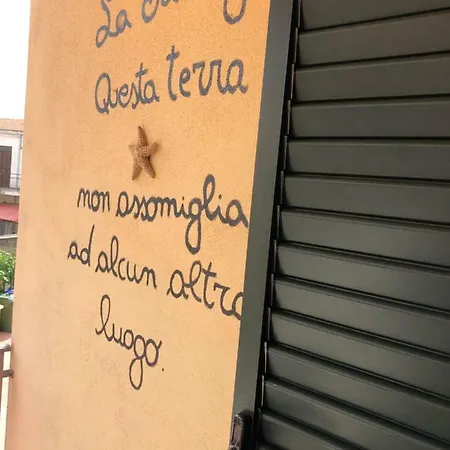 La
Questa terra
non assomiglia
ad alcun altro
luogo.